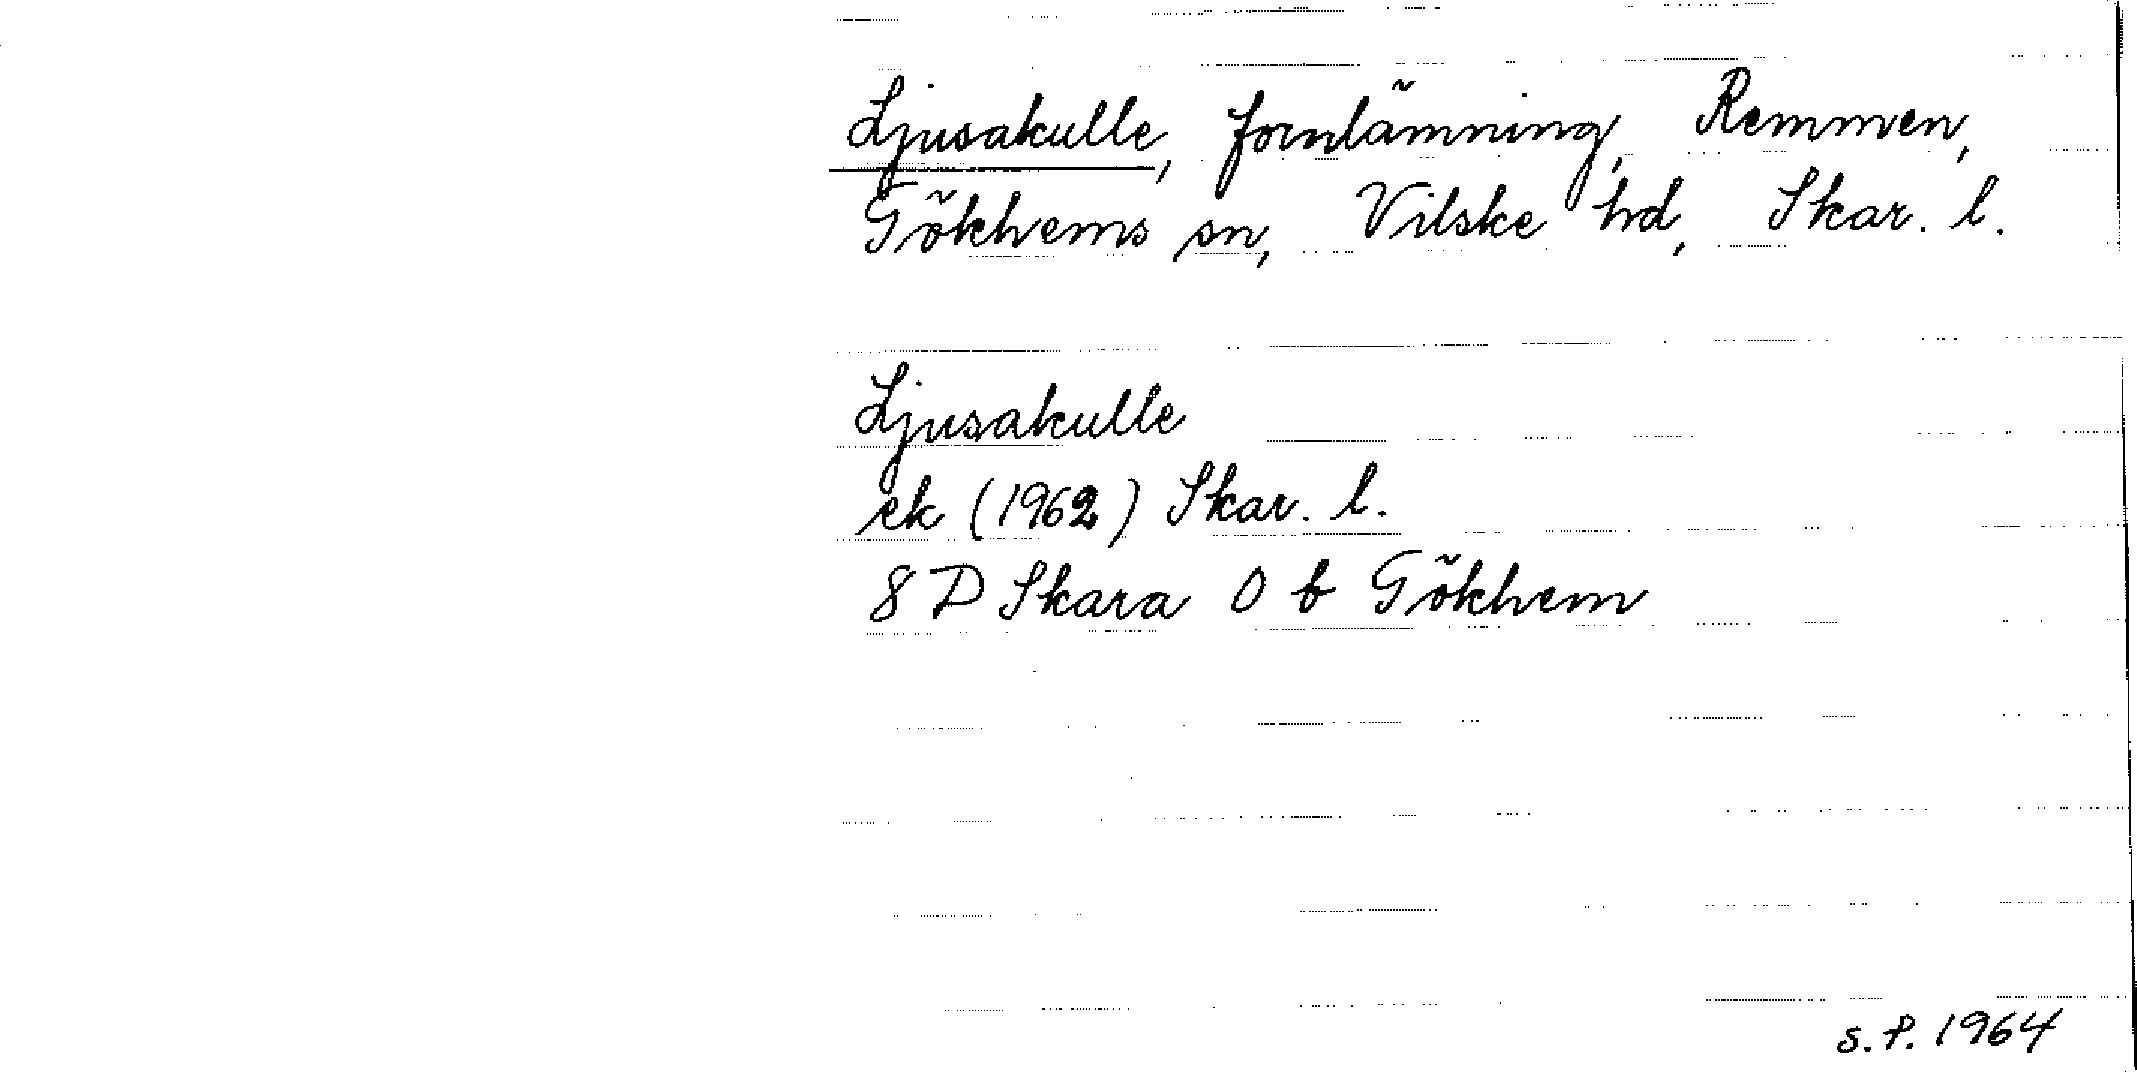 Ljusakulle, fornlämning, Remmen,
Gökhems sn, Vilske hd, Skar. l.
Ljusakulle
ek (1962) Skar. l.
8 D Skara 0 b Gökhem
S.P. 1964